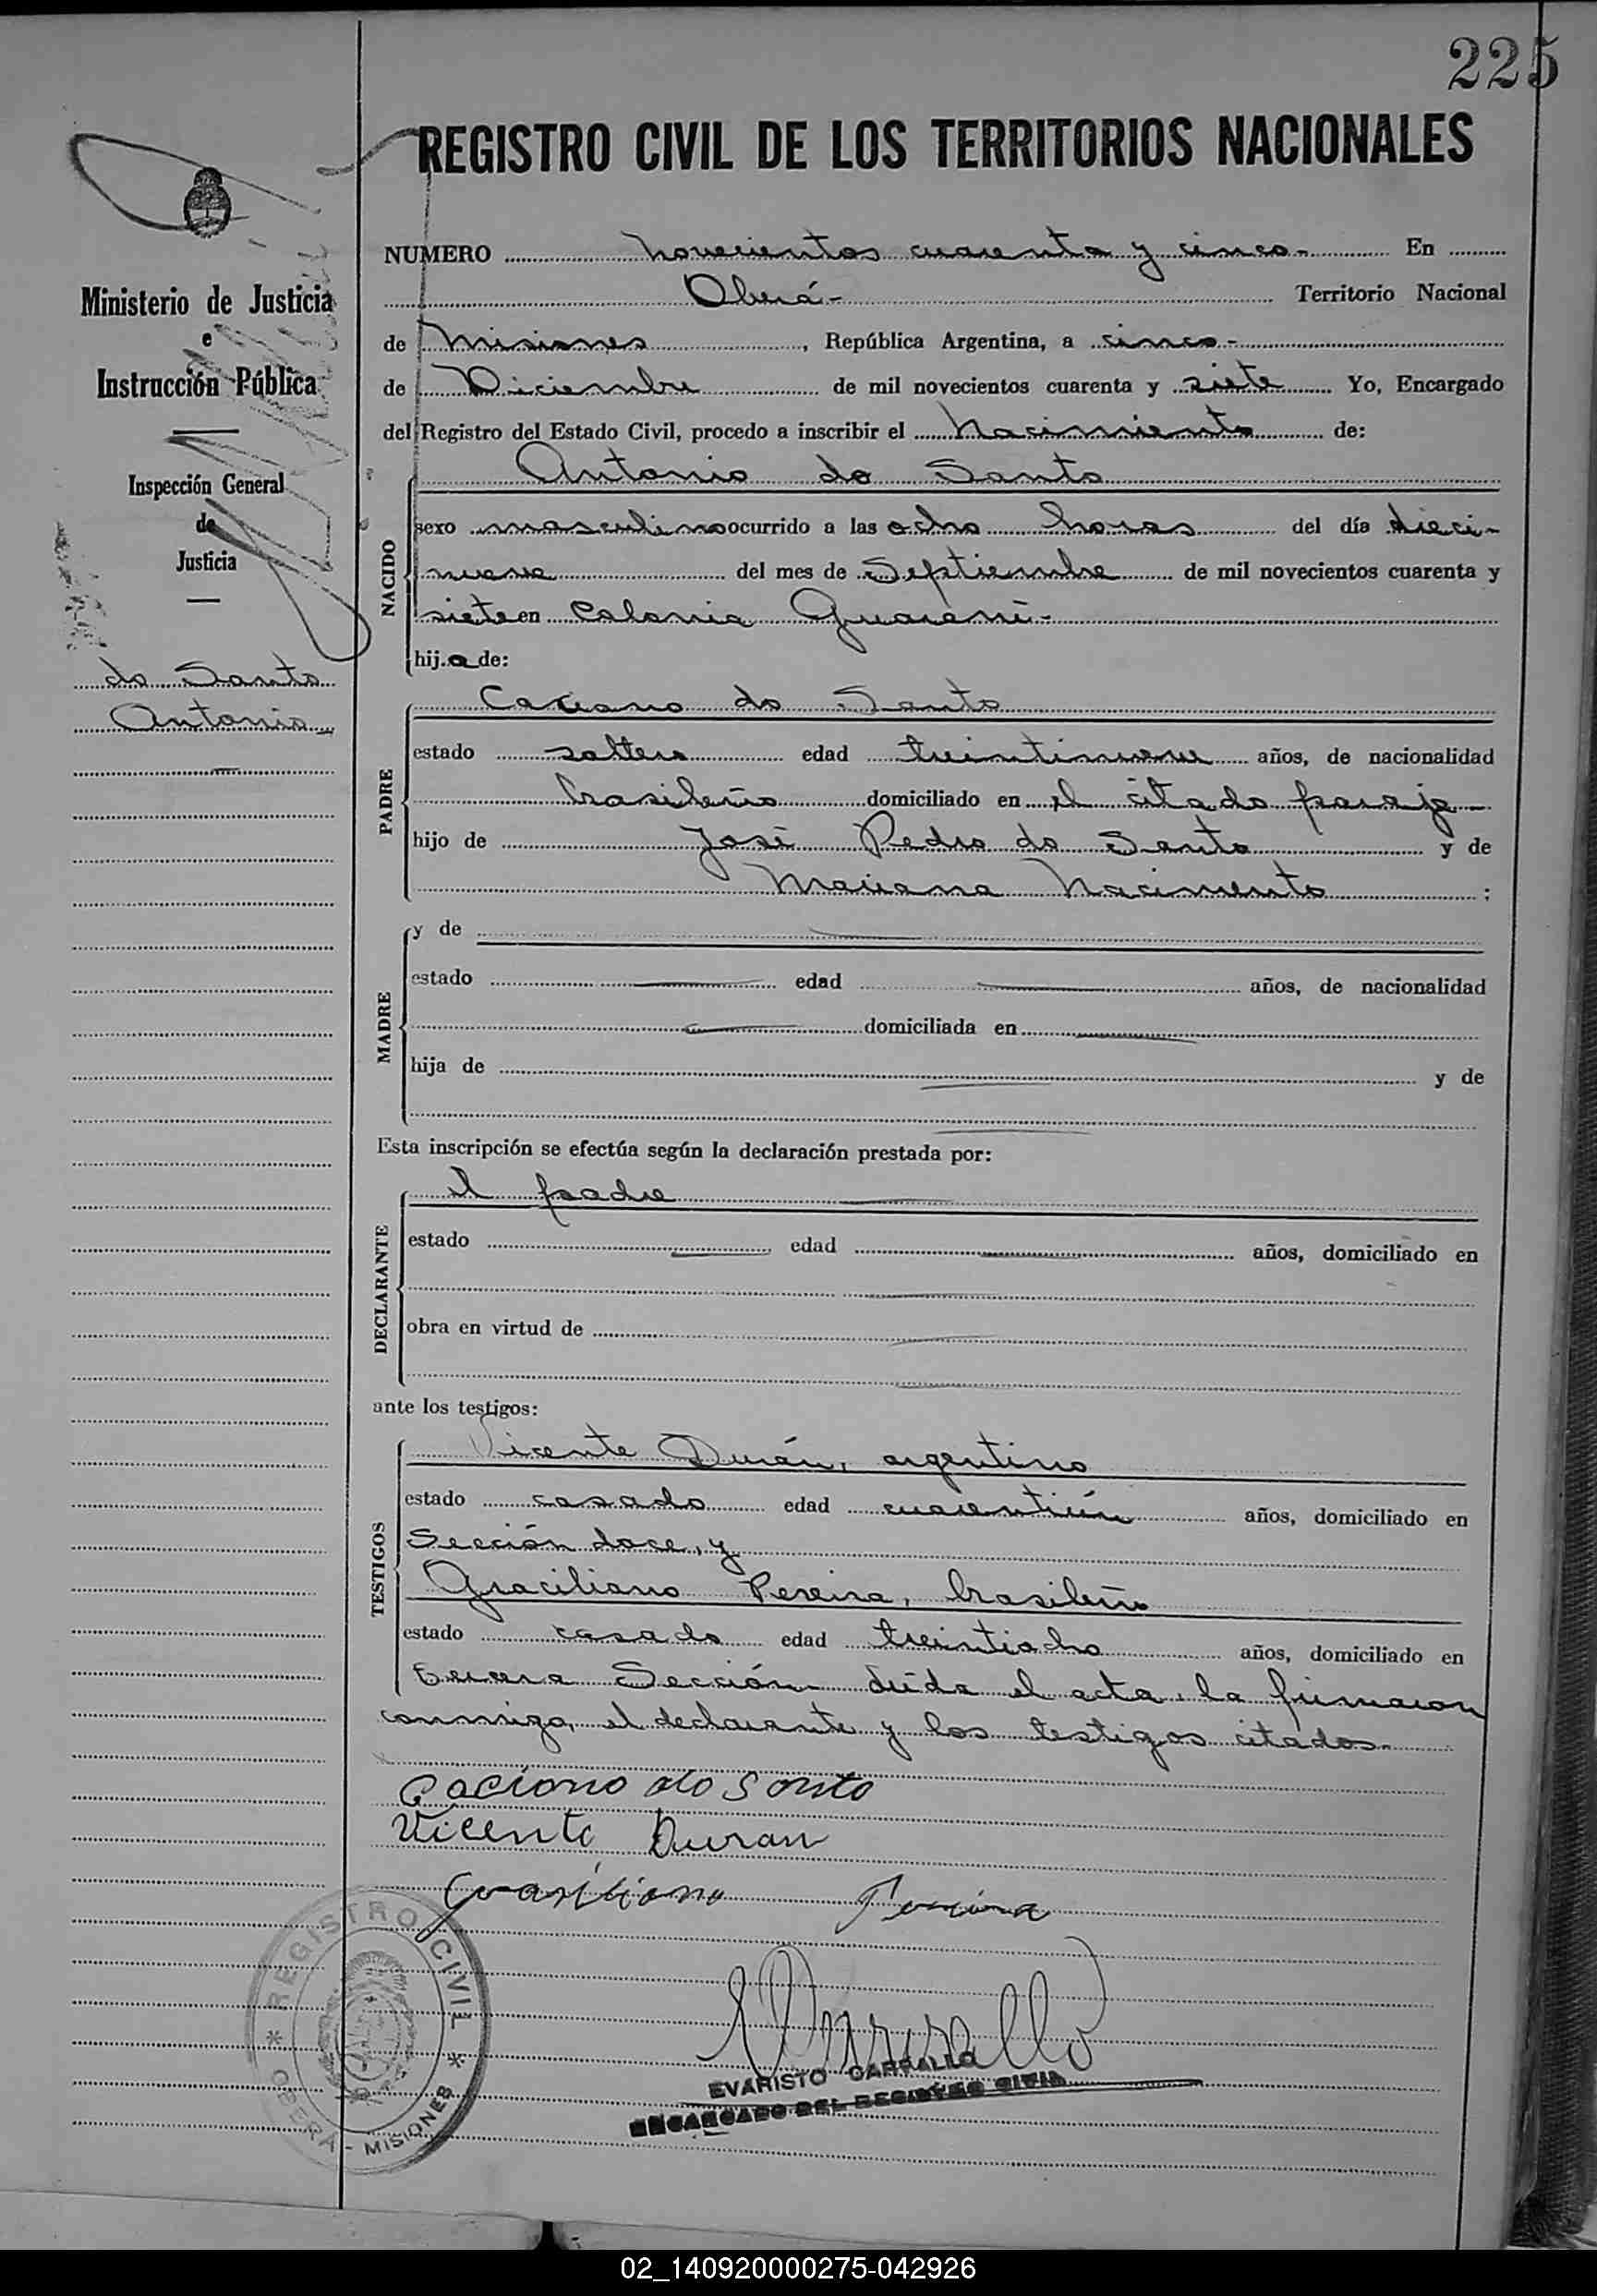 225
REGISTRO CIVIL DE LOS TERRITORIOS NACIONALES
Ministerio de Justicia
e
Instrucción Pública
Inspección General
de
Justicia
do Santo
Antonio
NUMERO novecientos cuarenta y cinco.- En
Oberá.- Territorio Nacional
de Misiones, República Argentina, a cinco.-
de Diciembre de mil novecientos cuarenta y siete Yo, Encargado
del Registro del Estado Civil, procedo a inscribir el Nacimiento de:
NACIDO
Antonio do Santo
sexo masculino ocurrido a las ocho horas del día dieci-
nueve del mes de Septiembre de mil novecientos cuarenta y
siete en Colonia Guaraní.-
hijo de:
PADRE
Caciano do Santo
estado soltero edad treintinueve años, de nacionalidad
brasileño domiciliado en el citado paraje
hijo de José Pedro do Santo y de
Mariana Nacimento ;
MADRE
y de
estado edad años, de nacionalidad
domiciliada en
hija de y de
Esta inscripción se efectúa según la declaración prestada por:
DECLARANTE
el padre
estado edad años, domiciliado en
obra en virtud de
ante los testigos:
TESTIGOS
Vicente Durán, argentino
estado casado edad cuarentiún años, domiciliado en
Sección doce, y
Graciliano Pereira, brasileño
estado casado edad treintiocho años, domiciliado en
tercera Sección leída el acta, la firmaron
conmigo, el declarante y los testigos citados.-
Caciono do Sonto
Vicente Duran
Grasiliano Pereira
EVARISTO CARBALLO
ENCARGADO DEL REGISTRO CIVIL
REGISTRO CIVIL
OBERA - MISIONES
02_140920000275-042926